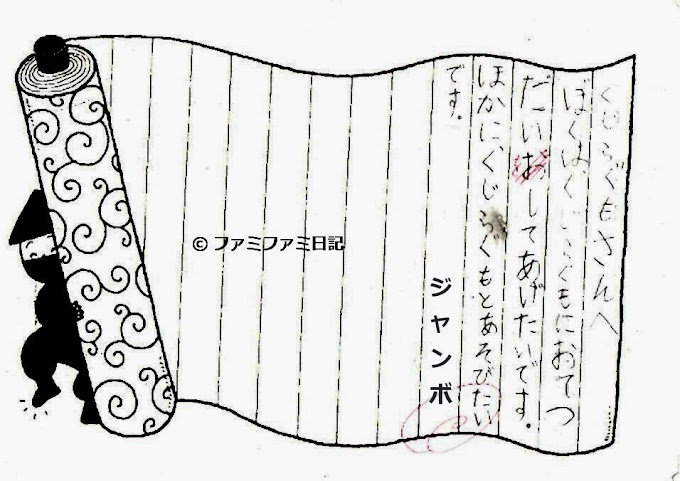 くじらぐもさんへ
ぼくは、くじらぐもにおてつ
だいおしてあげたいです。
ほかに、くじらぐもとあそびたい
です。
ジャンボ
© ファミファミ日記